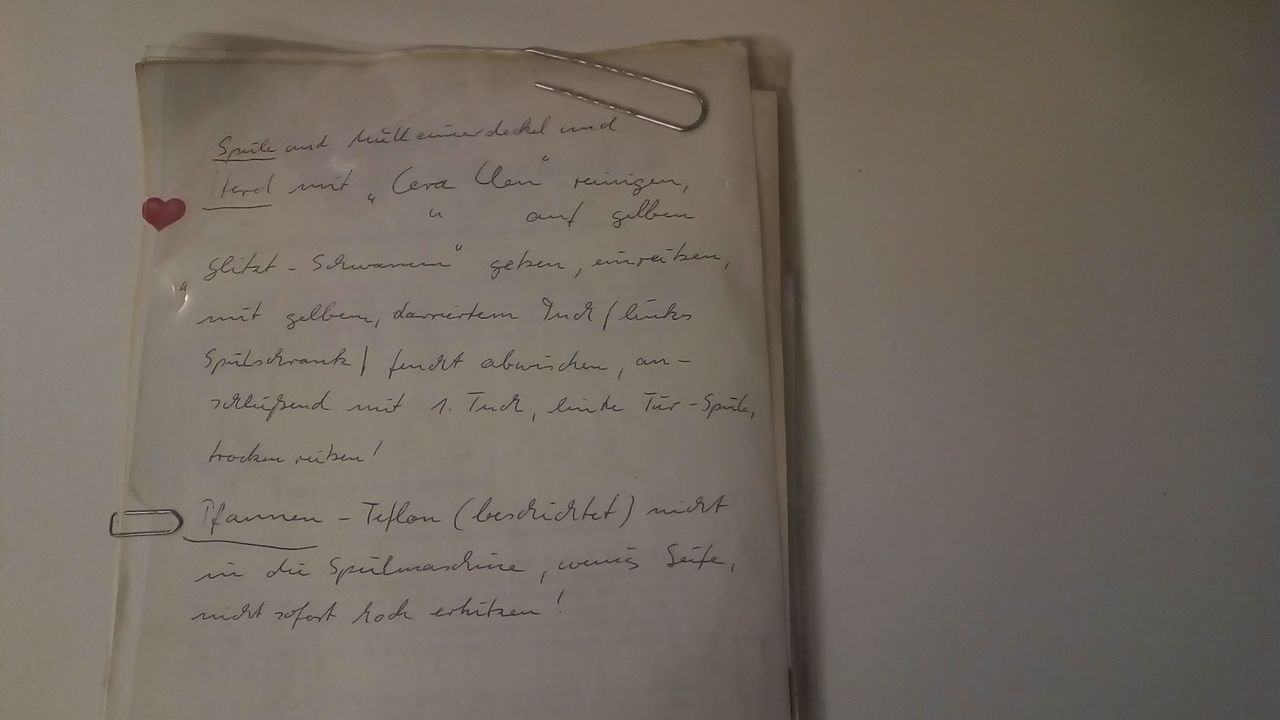 Spüle und Mülleimerdeckel und
Herd mit „Cera Clen" reinigen,
" auf gelben
„Glitzi-Schwamm" geben, einreiben,
mit gelbem, Tuch / linkes
Spülschrank / feucht abwischen, an-
schließend mit 1. Tuch, linke Tür-Spüle,
trocken reiben!
Pfannen - Teflon (beschichtet) nicht
in die Spülmaschine, wenig Seife,
nicht sofort hoch erhitzen!